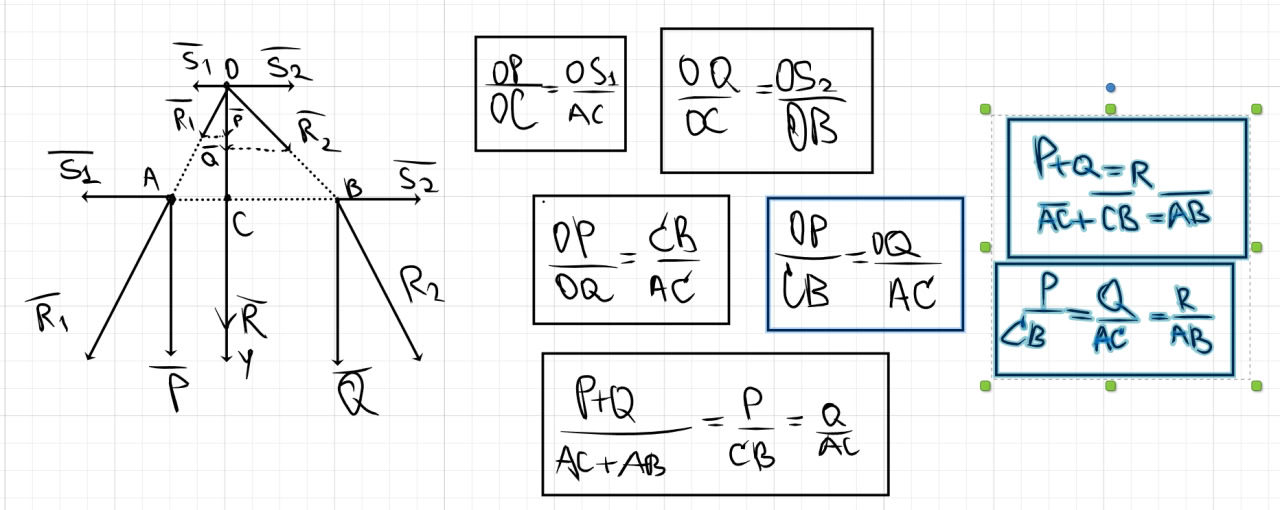 S1 O S2
R1 P R2
Q
S1 A B S2
C
R1 R R2
P y Q
OP/OC = OS1/AC
OQ/OC = OS2/OB
OP/OQ = CB/AC
OP/CB = OQ/AC
P+Q/AC+AB = P/CB = Q/AC
P+Q=R
AC+CB=AB
P/CB = Q/AC = R/AB